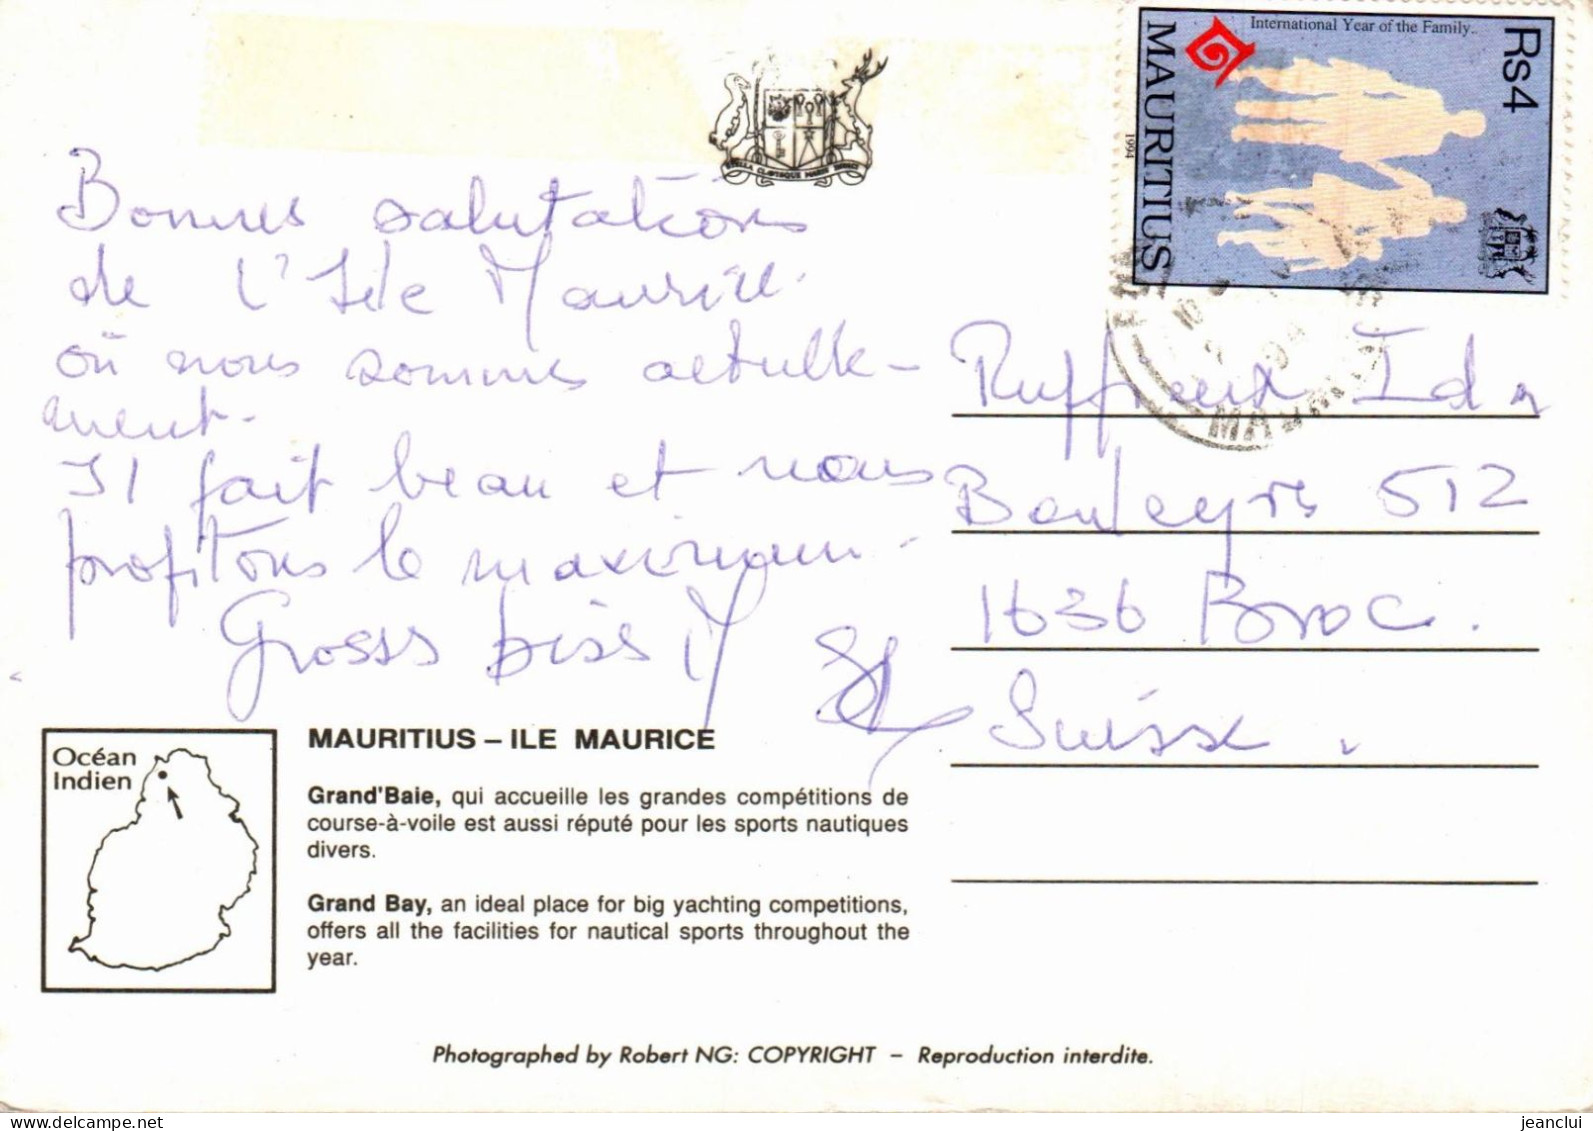 International Year of the Family..
Rs4
MAURITIUS
1994
STELLA CLAVISQUE MARIS INDICI
Bonnes salutations
de l'Ile Maurice.
où nous sommes actuelle-
ment.
Il fait beau et nous
profitons le maximum.
Gross
Ruffieux Ida
Bouleyres 512
1636 Broc.
Suisse.
Océan
Indien
MAURITIUS – ILE MAURICE
Grand'Baie, qui accueille les grandes compétitions de
course-à-voile est aussi réputé pour les sports nautiques
divers.
Grand Bay, an ideal place for big yachting competitions,
offers all the facilities for nautical sports throughout the
year.
Photographed by Robert NG: COPYRIGHT – Reproduction interdite.
delcampe.net
jeanclui